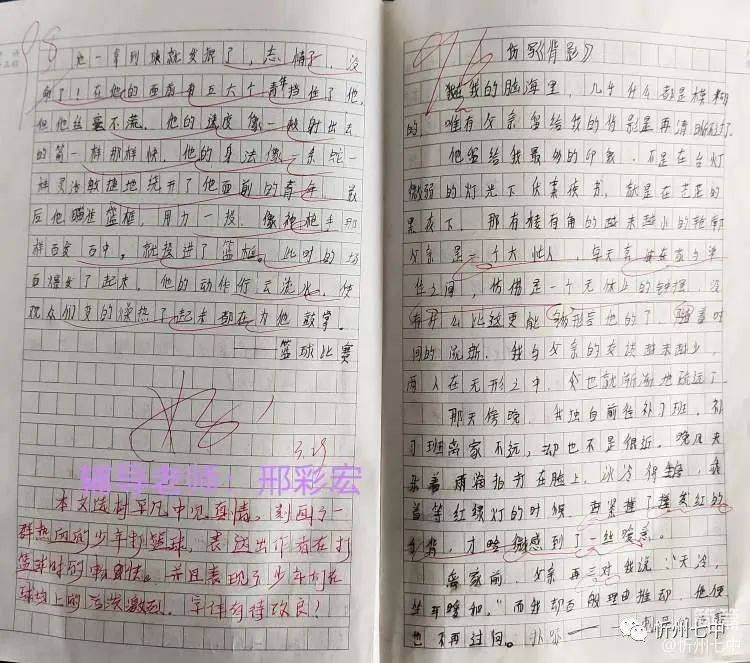 98
他一拿到球就发挥了,志
了!在他的面前有五六个青年挡住了他,
但他丝毫不慌。他的速度像一般射出去
的箭一样那样快,他的身法像一条蛇一
样灵活敏捷地绕开了他面前的青年,最
后他瞄准篮框,用力一投,像神枪手那
样百发百中。就投进了篮框。此时的场
面爆发了起来,他的动作行云流水,使
观众们变的燥热了起来都在为他鼓掌。
——篮球比赛
3.29
辅导老师:邢彩宏
本文选材平凡中见真情,刻画了一
群热血的少年打篮球,表达出作者在打
篮球时的轻松愉快。并且表现了少年们在
球场上的活泼激烈。字体有待改良!
96
仿写《背影》
在我的脑海里,几乎什么都是模糊
的,唯有父亲留给我的背影是再清晰不过了。
他留给我最多的印象,不是在台灯
微弱的灯光下伏案读书,就是在茫茫的
黑夜下,那有棱有角的越来越小的轮廓
父亲是一个大忙人,早天言
之间,仿佛是一个无休止的钟摆,没
有什么比这更能够形容他的了。随着时
间的流逝,我与父亲的交谈越来越少,
两人在无形之中,也就渐渐地疏远了。
那天傍晚,我独自前往补习班,补
习班离家不远,却也不是很近。晚风夹
杂着雨滴拍打在脸上,冰冷得
着等红绿灯的时候,再紧握了握冻红的
手背,才略微感到了一丝暖意。
离家前,父亲再三对我说:“天冷,
坐车暖和。”而我却百般理由推却,他便
也不再过问。
忻州七中
@忻州七中